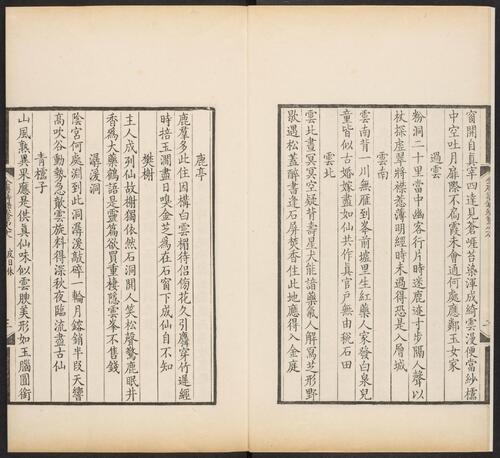 窗開自真宰四達見蒼崕苔染渾成綺雲漫便當紗櫺
中空吐月扉際不扃霞未會通何處應鄰玉女家
過雲
粉洞二十里當中幽客行片時迷鹿迹寸步隔人聲以
杖探虛翠將襟惹薄明經時未過得恐是入層城
雲南
雲南背一川無雁到峯前墟里生紅藥人家發白泉兒
童皆似古婚嫁盡如仙共作真官戶無由稅石田
雲北
雲北晝冥冥空疑背壽星犬能諳藥氣人解寫芝形野
歇遇松蓋醉書逢石屏焚香住此地應得入金庭
鹿亭
鹿羣多此住因構白雲楣待侶傍花久引麛穿竹遲經
時掊玉澗盡日嗅金芝為在石窗下成仙自不知
樊榭
主人成列仙故榭獨依然石洞閧人笑松聲驚鹿眠井
香為大藥鶴語是靈篇欲買重棲隱雲峯不售錢
潺湲洞
陰宮何處淵到此洞潺湲敲碎一輪月鎔銷半段天響
高吹谷動勢急歕雲旋料得深秋夜臨流盡古仙
青櫺子
山風熟異果應是供真仙味似雲腴美形如玉腦圓銜
皮日休
三